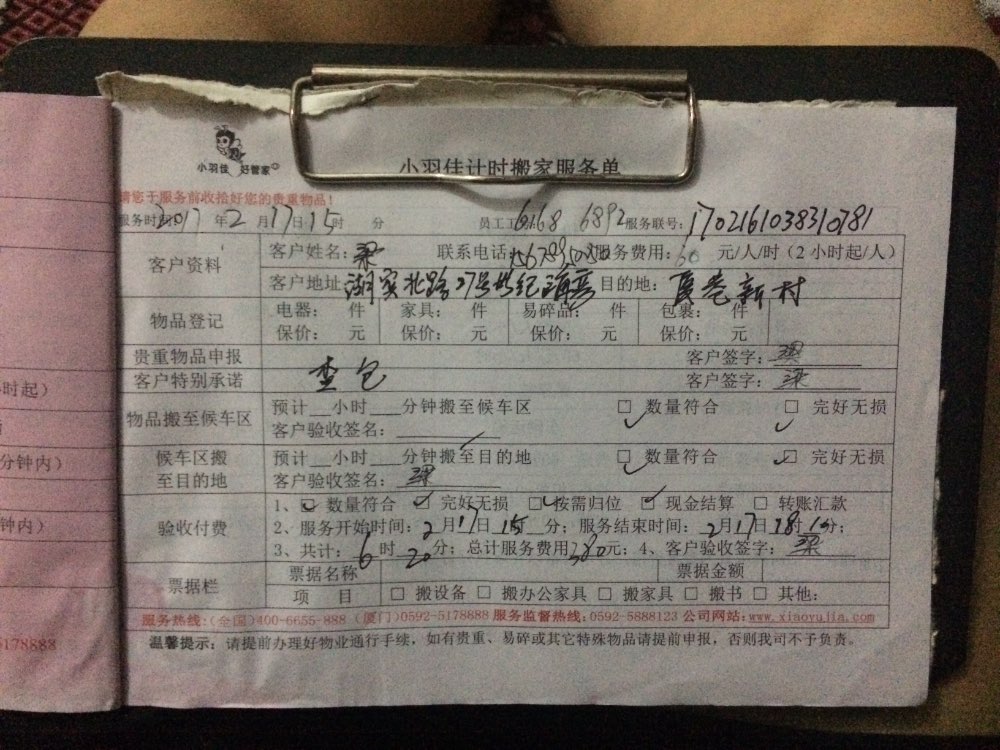 小羽佳 好管家
小羽佳计时搬家服务单
请您于服务前收拾好您的贵重物品！
服务时间：2017年2月17日15时 分 员工工 6168 6892 服务联号：1702161038310781
客户资料 客户姓名：梁 联系电话： 服务费用：60 元/人/时（2小时起/人）
客户地址 湖滨北路27号世纪海景 目的地：厦巷新村
物品登记 电器： 件 家具： 件 易碎品： 件 包裹： 件
保价： 元 保价： 元 保价： 元 保价： 元
贵重物品申报 客户签字：梁
客户特别承诺 查包 客户签字：梁
物品搬至候车区 预计__小时___分钟搬至候车区 □ 数量符合 □ 完好无损
客户验收签名：
候车区搬至目的地 预计__小时___分钟搬至目的地 □ 数量符合 □ 完好无损
客户验收签名：梁
验收付费 1、□ 数量符合 □ 完好无损 □ 按需归位 □ 现金结算 □ 转账汇款
2、服务开始时间：2月17日15 分；服务结束时间：2月17日18时10分；
3、共计：6时20分；总计服务费用380元；4、客户验收签字：梁
票据栏 票据名称 票据金额
项 目 □ 搬设备 □ 搬办公家具 □ 搬家具 □ 搬书 □ 其他：
服务热线：(全国)400-6655-888 (厦门)0592-5178888 服务监督热线：0592-5888123 公司网站：www.xiaoyujia.com
温馨提示：请提前办理好物业通行手续，如有贵重、易碎或其它特殊物品请提前申报，否则我司不予负责。
时起）
分钟内）
钟内）
5178888